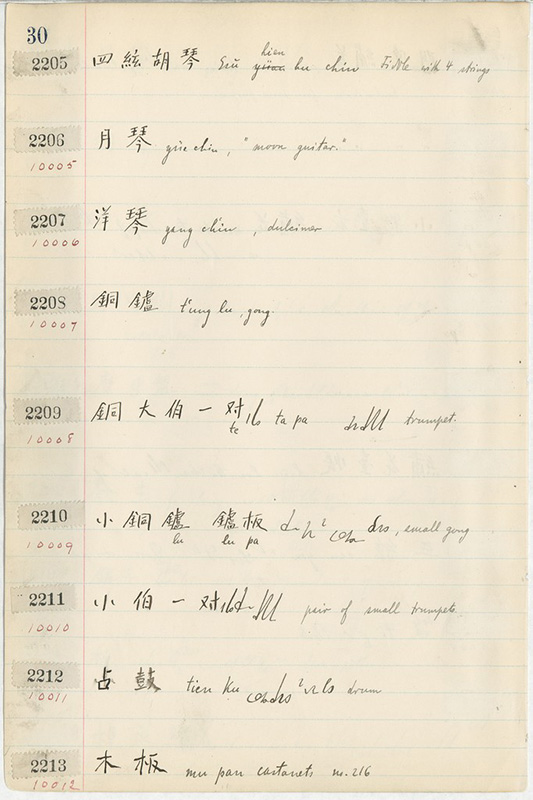 30
2205 四絃胡琴 hien hu chin Fiddle with 4 strings
2206 月琴 yüe chin, "moon guitar."
10005
2207 洋琴 yang chin, dulcimer
10006
2208 銅鑪 t'ung lu, gong.
10007
2209 銅大伯一对 ta pa trumpet.
te
10008
2210 小銅鑪 鑪板 small gong
lu lu pa
10009
2211 小伯一对 pair of small trumpets
10010
2212 占鼓 tien ku drum
10011
2213 木板 mu pan castanets no. 216
10012